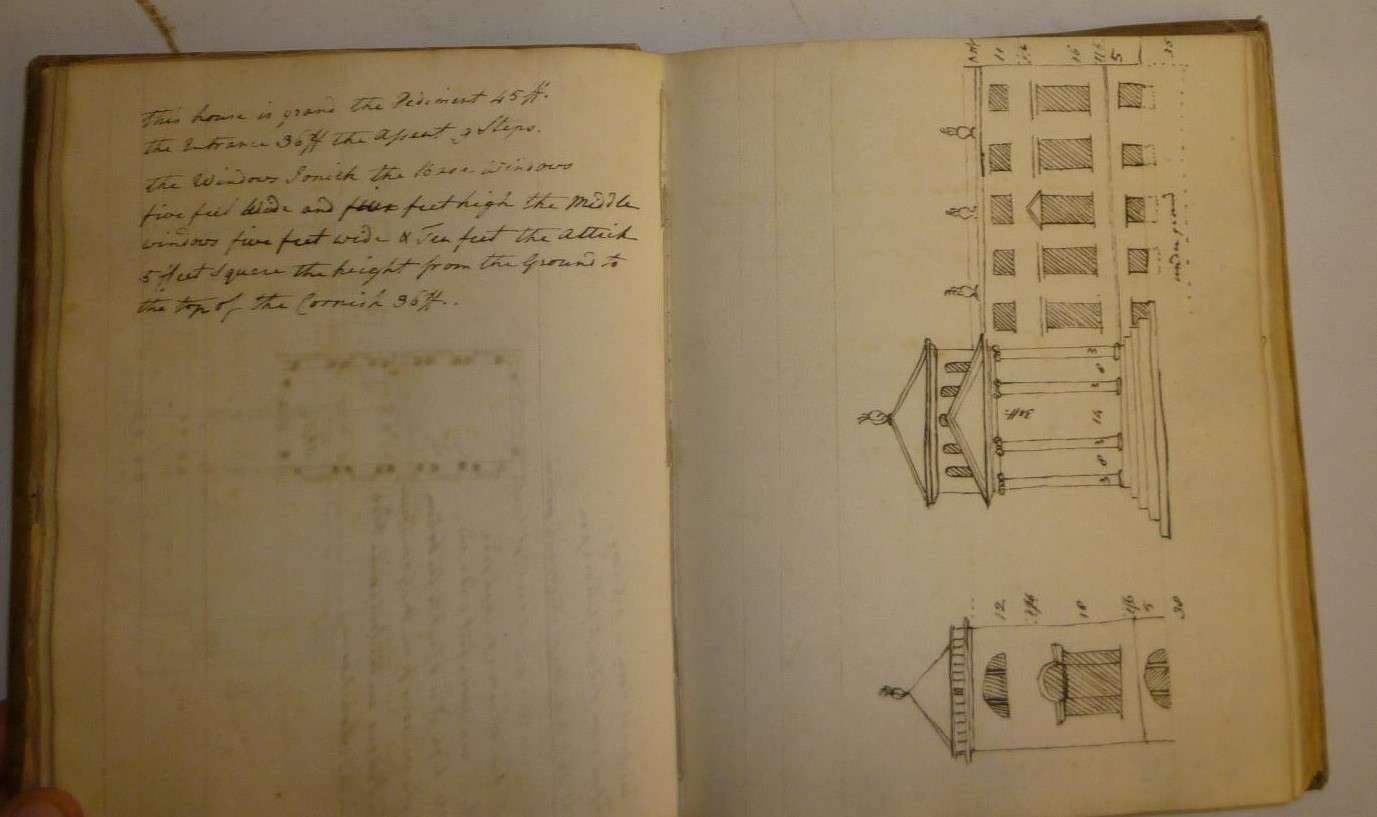 This house is grand the Pediment 45 ff.
the Entrance 36 ff the Assent 9 Steps.
the Windows Ionick the Base windows
five feet Wide and feet high the Middle
windows five feet wide & Ten feet the Attick
5 ffeet Square the height from the Ground to
the top of the Cornish 36 ff..
11
16
5
35
under ground
30 ff.
3
8
3
14
3
8
3
12
10
5
30